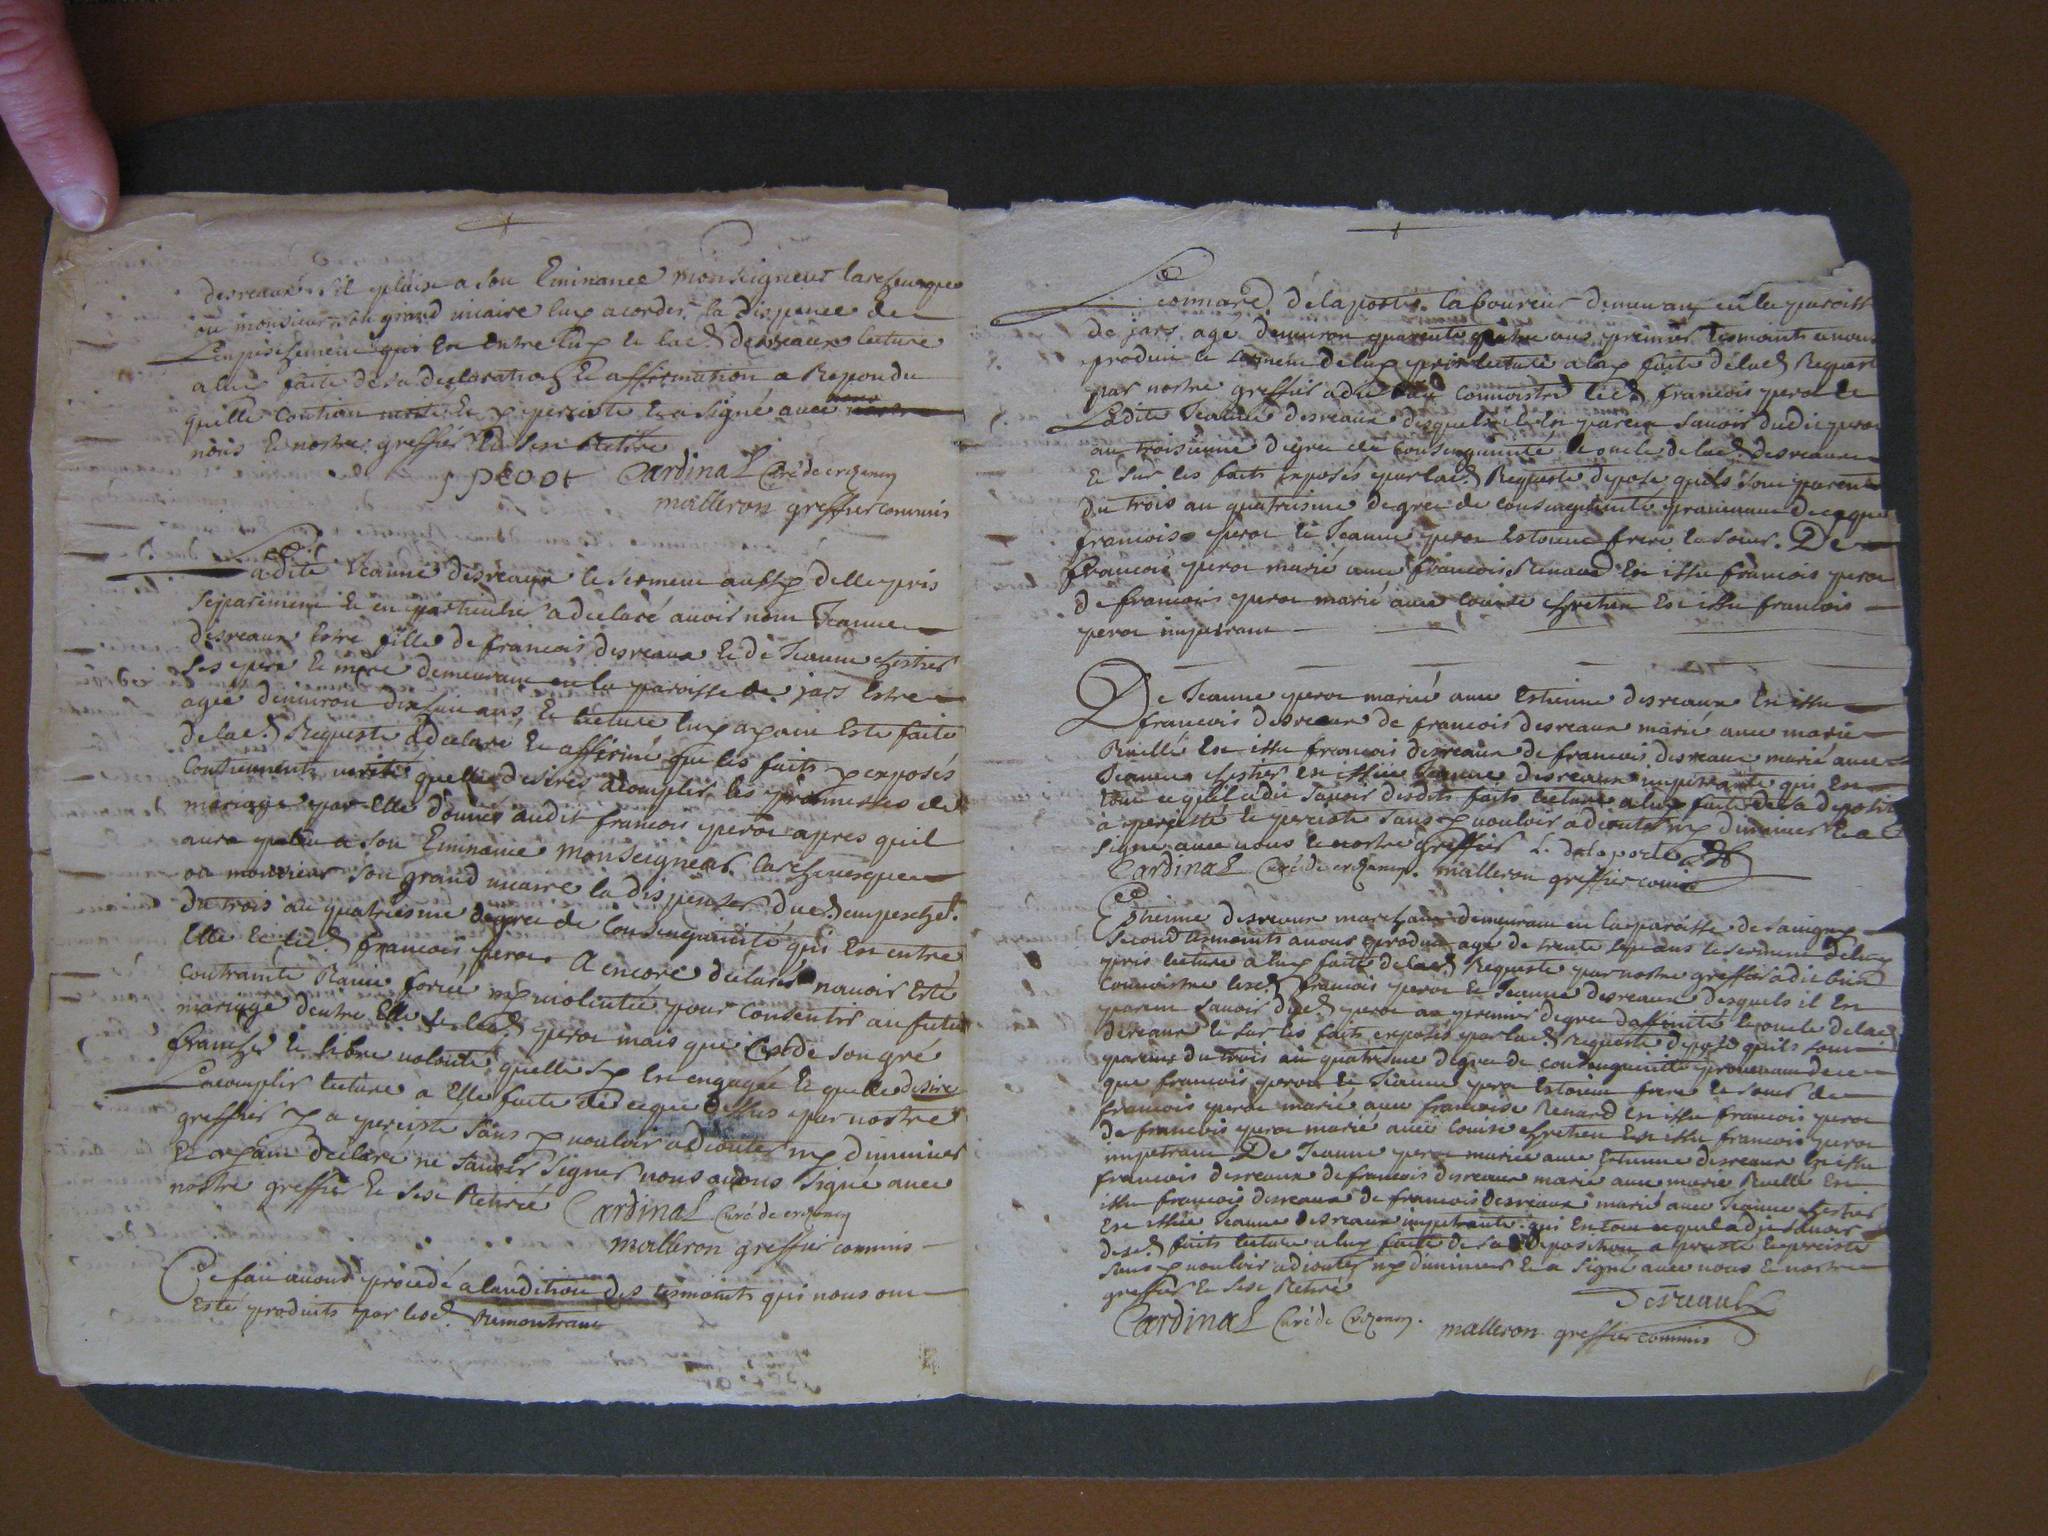 desreaux s'il plaise a son Eminance monseigneur larchevesque
ou monsieur son grand vicaire luy acorder la dispence de
Lempeschement qui est entre luy et lad. desreaux lecture
a luy faite de sa declaration et affirmation a Repondu
quelle contient verité et y persiste et a signé avec
nous
nous et nostre greffier et sest Retiré
f perot Cardinal Curé de crezency
malleron greffier commis
Ladite Jeanne desreaux le serment aussy delle pris
separement et en particulier a declaré avoir nom Jeanne
desreaux estre fille de francois desreaux et de Jeanne chestier
ses pere et mere demeurant en la paroisse de jars estre
agée denviron dixhuit ans, Et lecture luy ayant esté faite
de lad. Requeste a declaré et affirmé que les faits y exposés
contiennent verité quelle desire acomplir les promesses de
mariage par elle donnés audit francois perot apres quil
aura pleu a son Eminance monseigneur larchevesque
ou monsieur son grand vicaire la dispenser dud. empeschet.
du trois au quatriesme degré de consanguinité qui est entre
elle et led. francois perot A encore declaré navoir esté
contrainte Ravie forcée ny violentée pour consentir au futur
mariage dentre elle et led. perot mais que cest de son gré
franche et libre volonté quelle sy est engagée et quelle desire
Lacomplir lecture a elle faite de ce que dessus par nostre
greffier y a persisté sans y vouloir adiouter ny diminuer
et ayant declaré ne scavoir signer nous avons signé avec
nostre greffier et sest Retirée Cardinal Curé de crezency
malleron greffier commis
Ce fait avons procedé a laudition des tesmoints qui nous ont
esté produits par lesd. Remontrant
Leonnard delaposte laboureur demeurant en la paroiss
de jars agé denviron quarente quatre ans premier tesmoint a nous
produit le serment de luy pris lecture a luy faite de lad. Requeste
par nostre greffier a dit bien connoistre led. francois perot et
Ladite Jeanne desreaux desquels il est parent savoir dudit perot
au troisieme degré de consanguinité et oncle de lad. desreaux
Et sur les faits exposés par lad. Requeste depose quils sont parents
du trois au quatriesme degré de consanguinité provenant de ce que
francois perot et Jeanne perot estoient frere et soeur. De
francois perot marié avec francoise Renard est issu francois perot
de francois perot marié avec Louise chretien est issu francois
perot impetrant
De Jeanne perot mariée avec Estienne desreaux est issu
francois desreaux de francois desreaux marié avec marie
Ruellé est issu francois desreaux de francois desreaux marié avec
Jeanne chestier est issue Jeanne desreaux impetrante qui est
tout ce quil a dit savoir desdits faits lecture a luy faite de sa depositio
a persisté et persiste sans y vouloir adiouter ny diminuer et a
signé avec nous et nostre greffier L. delaporte
Cardinal Curé de crezency. malleron greffier comis
Estienne desreaux marchant demeurant en la paroisse de savigny
second tesmoint a nous produit agé de trente sept ans le serment de luy
pris lecture a luy faite de lad. Requeste par nostre greffier a dit bien
connoistre lesd. francois perot et Jeanne desreaux desquels il est
parent savoir dud. perot au premier degré daffinité et oncle de lad.
desreaux et sur les faits exposés par lad. Requeste depose quils sont
parents du trois au quatriesme degré de consanguinité provenant de ce
que francois perot et Jeanne perot estoient frere et soeur de
francois perot marié avec francoise Renard est issu francois perot
de francois perot marié avec Louise chretien est issu francois perot
impetrant De Jeanne perot mariée avec Estienne desreaux est issu
francois desreaux de francois desreaux marié avec marie Ruellé est
issu francois desreaux de francois desreaux marié avec Jeanne chestier
est issue Jeanne desreaux impetrante qui est tout ce quil a dit savoir
desd. faits lecture a luy faite de sa deposition a persisté et persiste
sans y vouloir adiouter ny diminuer et a signé avec nous et nostre
greffier et sest Retiré
Desreaulx
Cardinal Curé de Crezency. malleron greffier commis